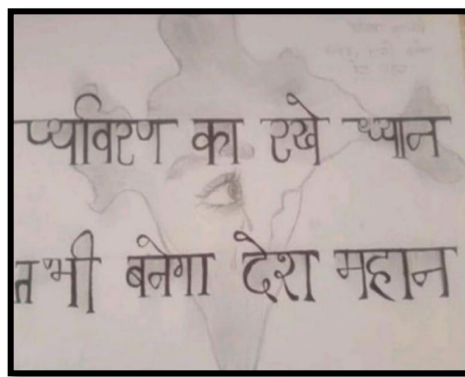 प्र्यावरण का रखे ध्यान
तभी बनेगा देश महान